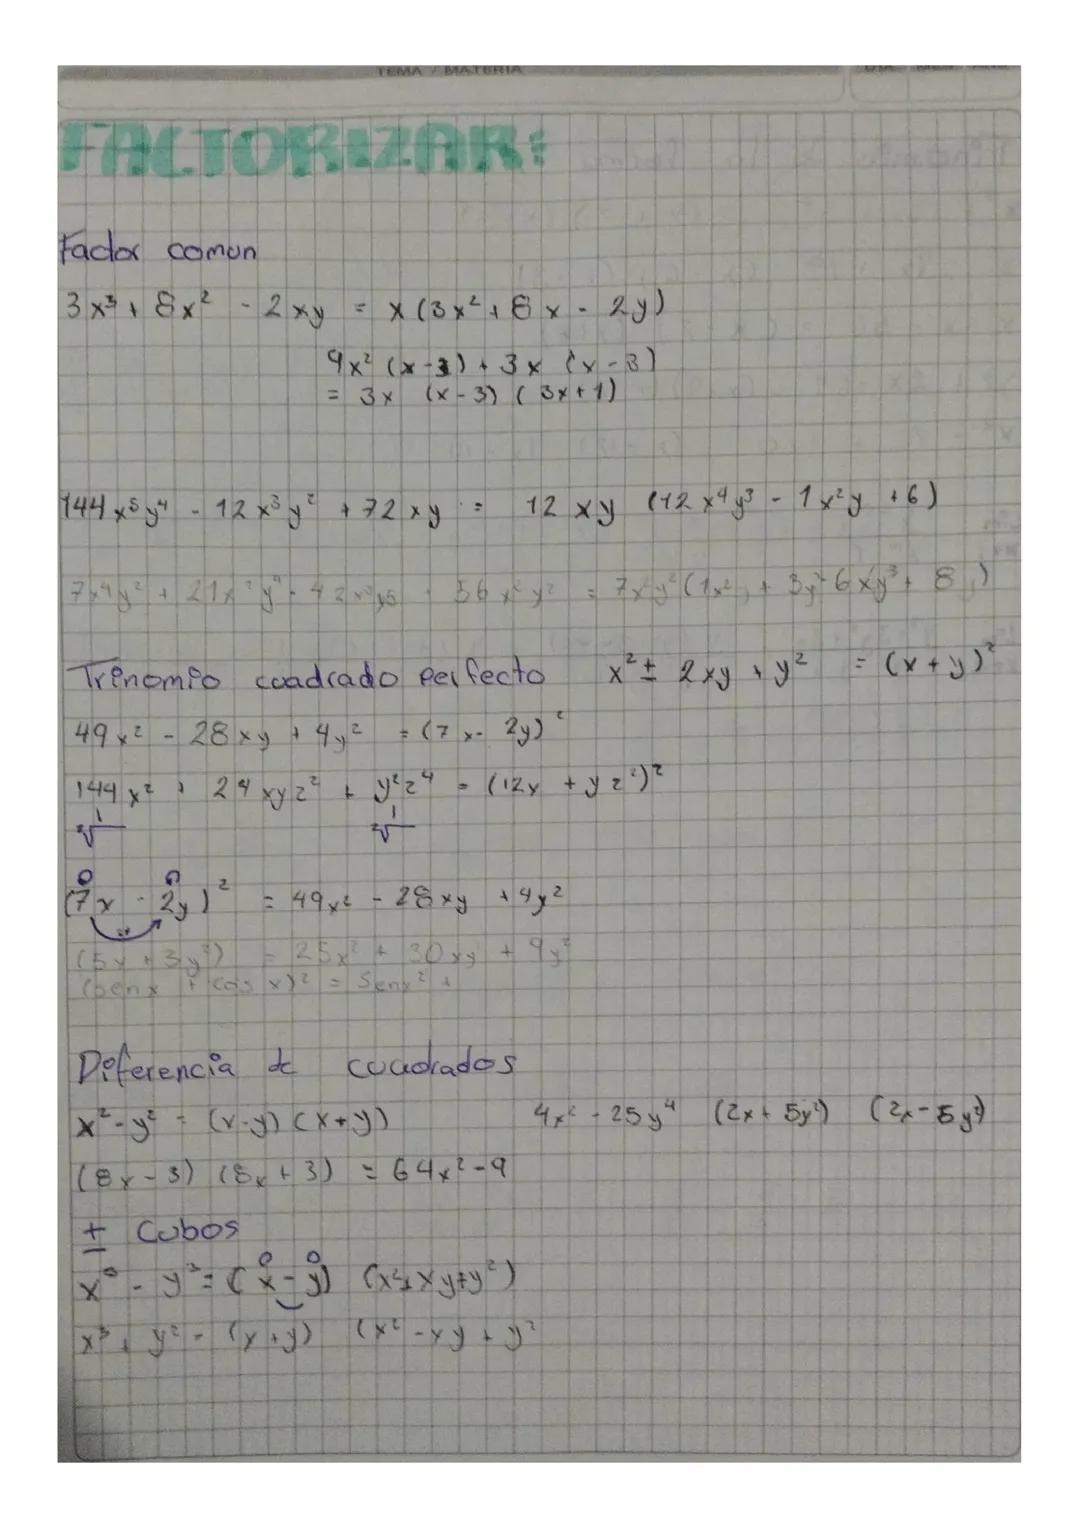 TEMA / MATERIA
FACTORIZAR:
Factor comun
3x³ + 8x² - 2xy = x (3x² + 8x - 2y)
9x² (x-3) + 3x (x-3)
= 3x (x-3) (3x+1)
144x⁵y⁴ - 12x³y² + 72xy = 12xy (12x⁴y³ - 1x²y + 6)
Trinomio cuadrado perfecto x² ± 2xy + y² = (x+y)²
49x² - 28xy + 4y² = (7x - 2y)²
144x² + 24xyz² + y²z⁴ = (12x + yz²)²
(7x - 2y)² = 49x² - 28xy + 4y²
(5x + 3y²) = 25x² + 30xy + 9y²
(senx + cos x)² = Senx² +
Diferencia de cuadrados
x² - y² = (x-y) (x+y) 4x² - 25y⁴ (2x + 5y²) (2x - 5y²)
(8x - 3) (8x + 3) = 64x² - 9
± Cubos
x³ - y³ = (x - y) (x² + xy + y²)
x³ + y² = (x+y) (x² - xy + y²